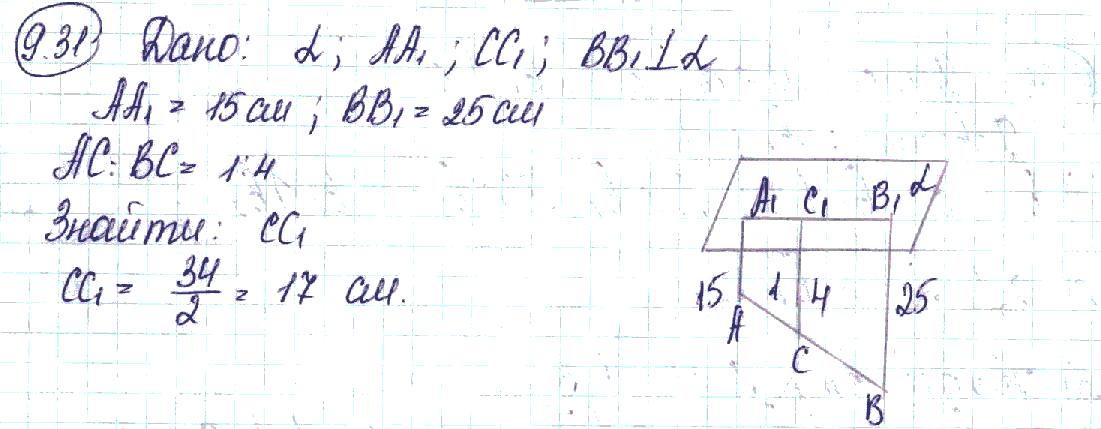 9.31 Дано: α; AA₁; CC₁; BB₁ ⊥ α
AA₁ = 15 см; BB₁ = 25 см
AC : BC = 1:4
Знайти: CC₁
CC₁ = 34/2 = 17 см.
A₁ C₁ B₁ α
15 1 4 25
A
C
B